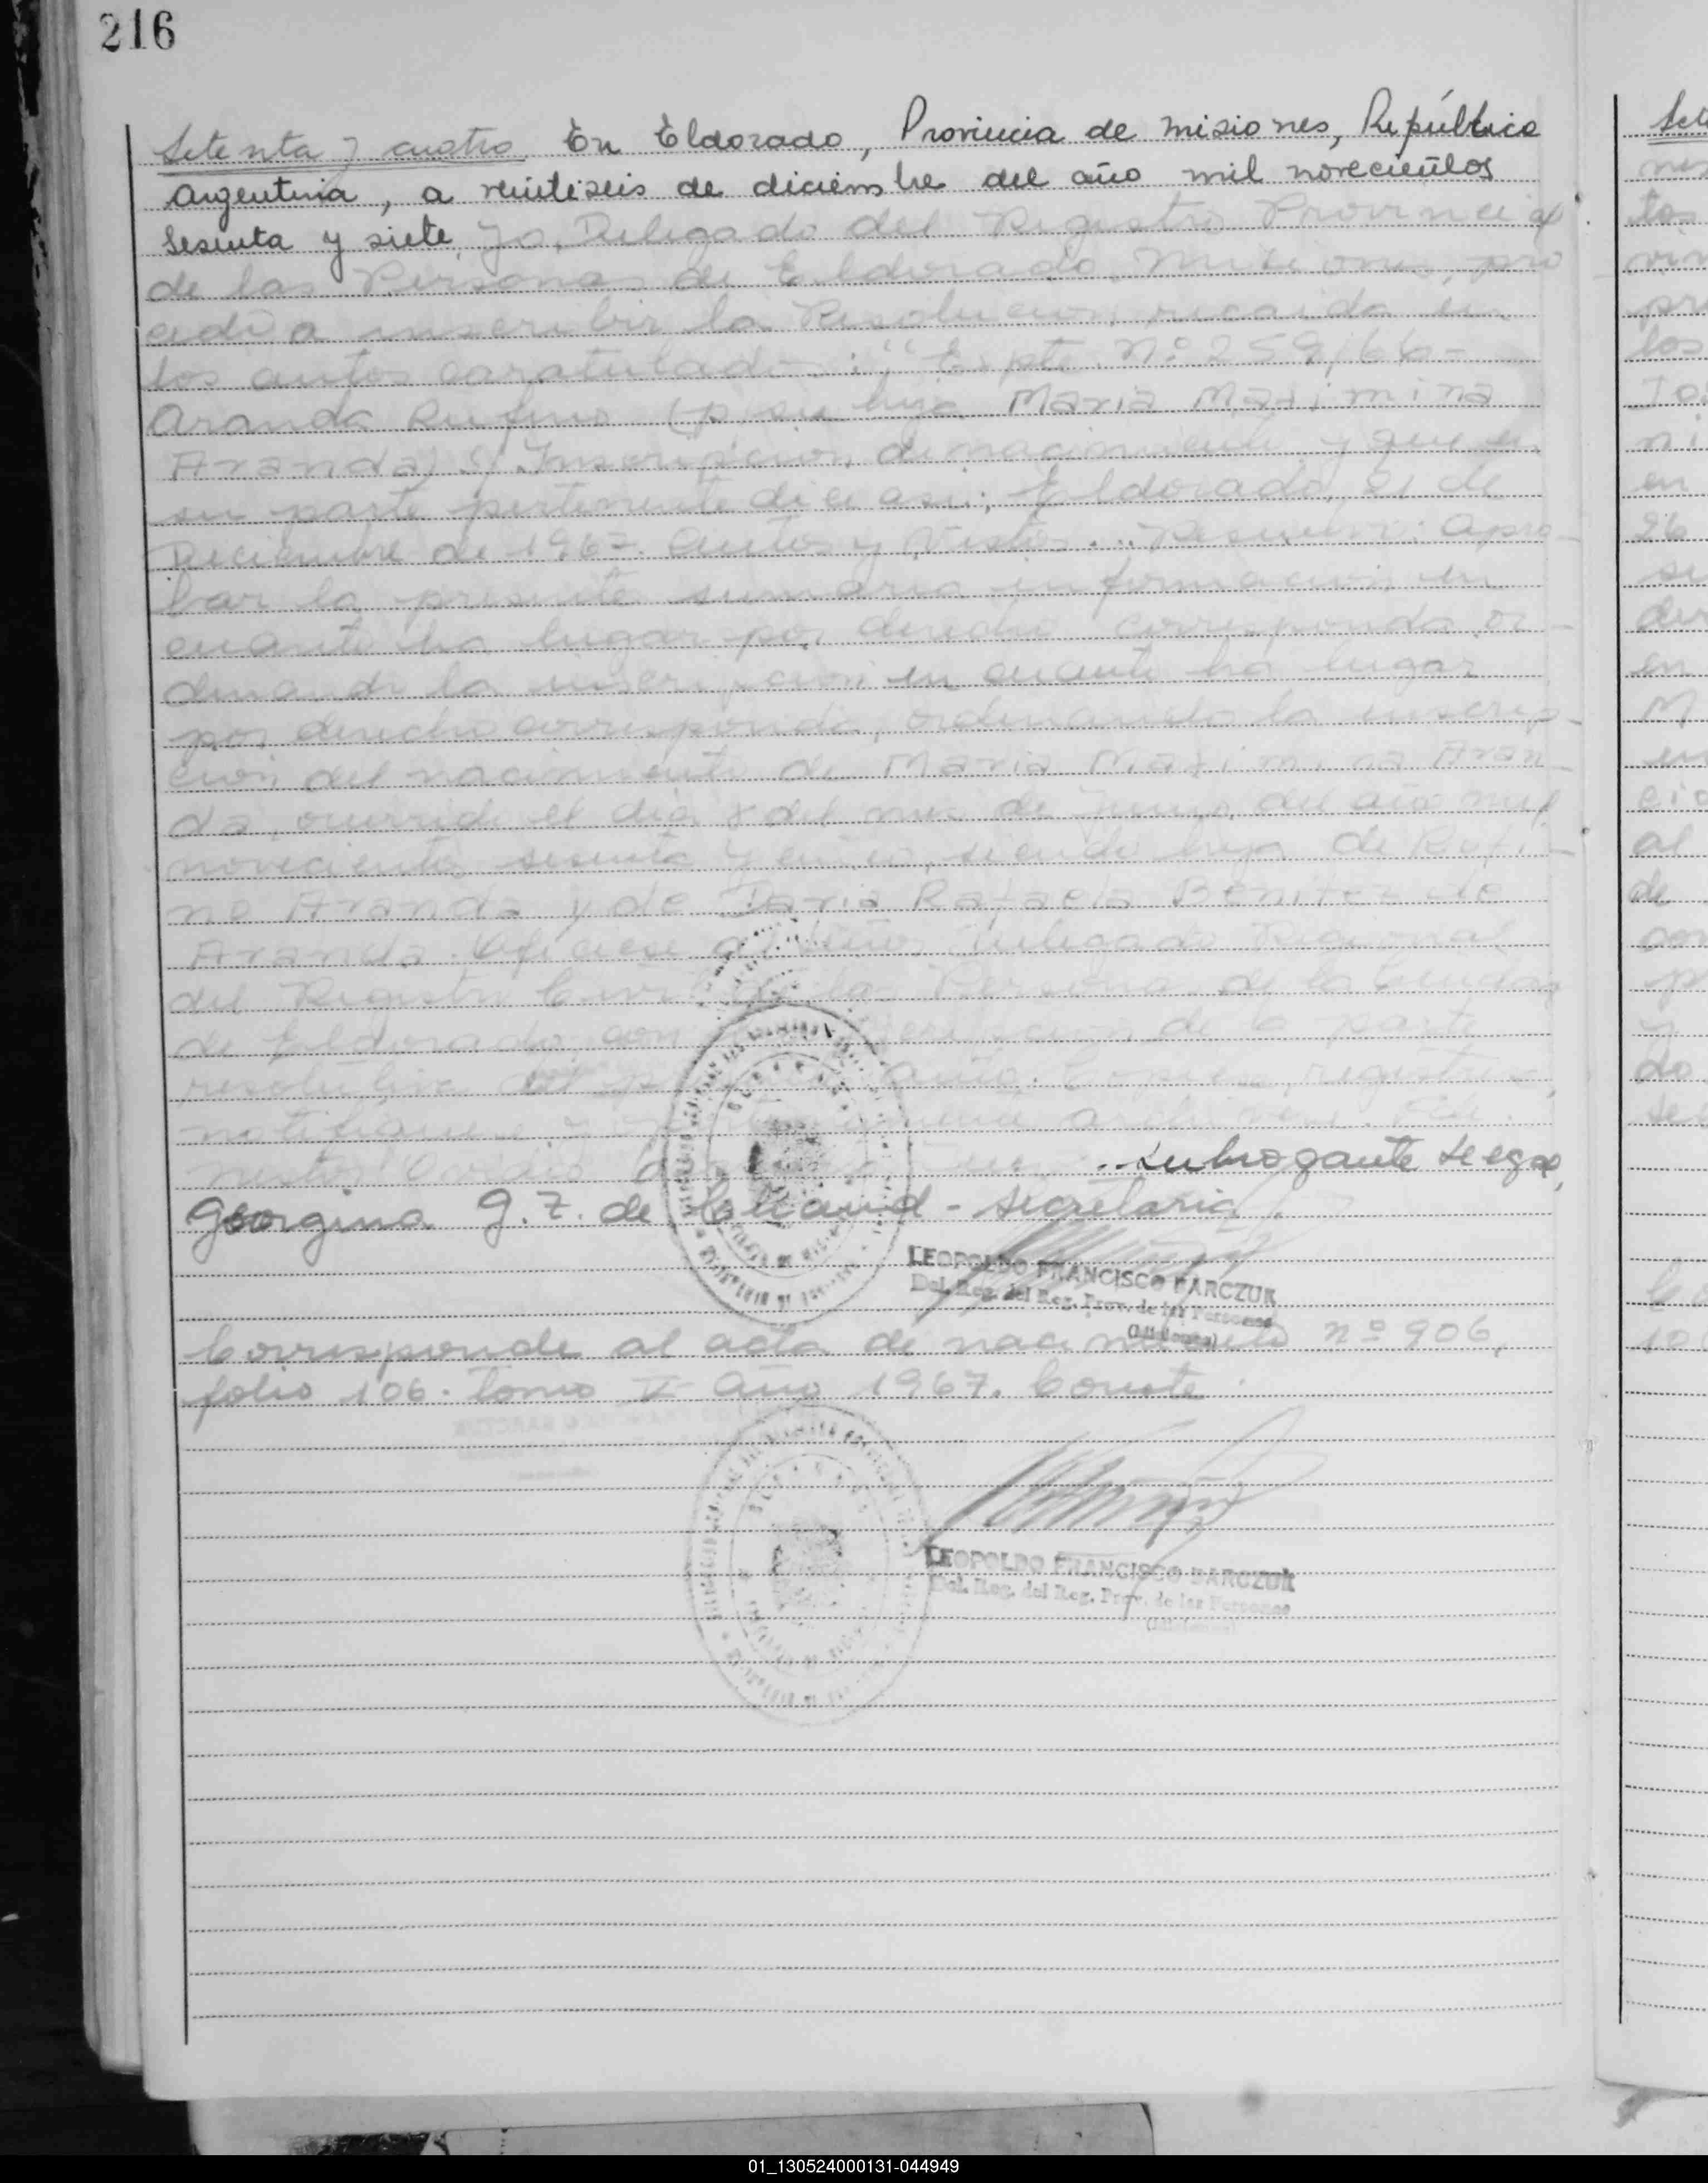 216
Setenta y cuatro. En Eldorado, Provincia de misiones, República
Argentina, a veintiseis de diciembre del año mil novecientos
sesenta y siete, Yo, Delegado del Registro Provincial
de las Personas de Eldorado, Misiones, pro
cedo a inscribir la Resolucion recaida en
los autos caratulados: "Expte. Nº 259/66-
Aranda Rufino (p/su hija Maria Maximina
Aranda) s/ Inscripcion de nacimiento y que en
su parte pertinente dice asi: Eldorado, 21 de
Diciembre de 1967. Autos y Vistos... Resuelvo: Apro-
bar la presente sumaria informacion en
cuanto ha lugar por derecho corresponda or-
denando la inscripcion en cuanto ha lugar
por derecho corresponda, ordenando la inscrip-
cion del nacimiento de Maria Maximina Aran-
da, ocurrido el dia 8 del mes de Junio del año mil
novecientos sesenta y cinco, siendo hija de Rufi-
no Aranda y de Maria Rafaela Benitez de
Aranda. Oficiese al Señor Delegado Regional
del Registro Civil de las Personas de la Ciudad
de Eldorado, con de la parte
resolutiva del auto. registrese,
notifiquese y
Nestor Ovidio subrogante Legal,
Georgina G. Z. de - secretaria.
LEOPOLDO FRANCISCO BARCZUK
Del. Reg. del Reg. Prov. de las Personas
(Misiones)
Corresponde al acta de nacimiento nº 906,
folio 106. tomo V año 1967. Conste.
LEOPOLDO FRANCISCO BARCZUK
Del. Reg. del Reg. Prov. de las Personas
(Misiones)
01_130524000131-044949